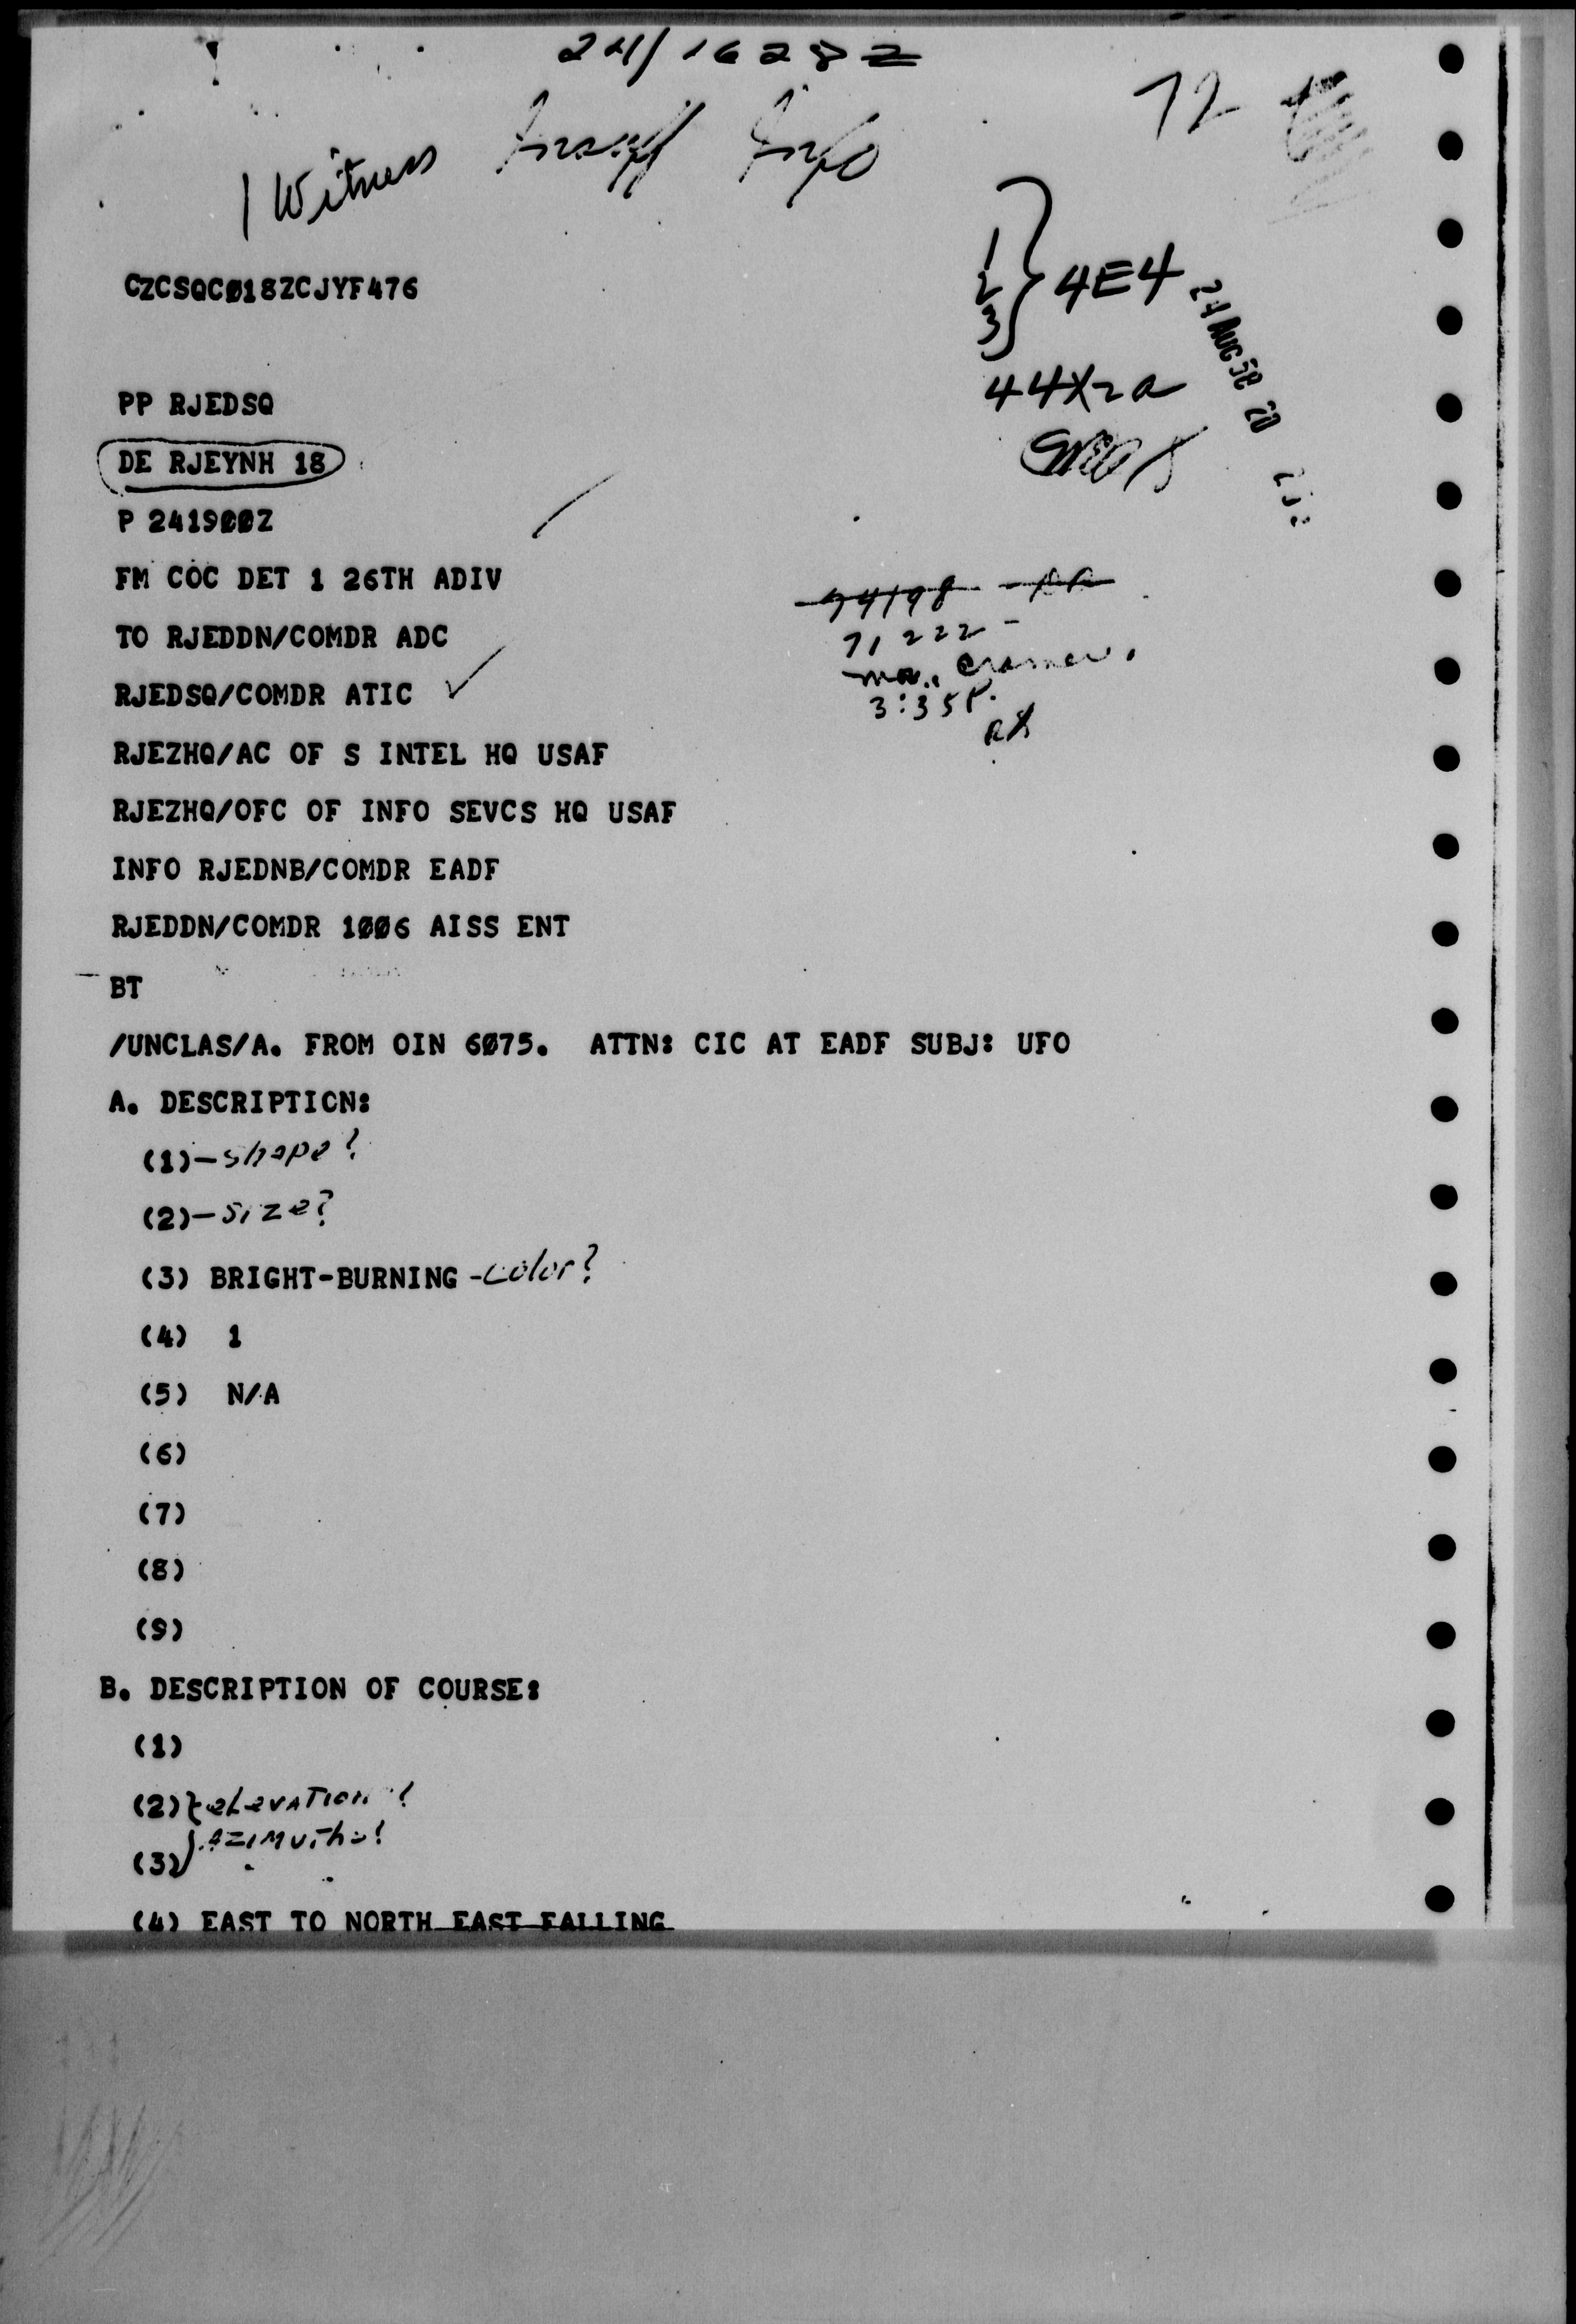 24/1628Z
1 Witness Insuff Info
72
CZCSQCØ18ZCJYF476
1
2
3
} 4E4
24 AUG 58 20
44X2a
PP RJEDSQ
DE RJEYNH 18
P 2419ØØZ
FM COC DET 1 26TH ADIV
TO RJEDDN/COMDR ADC
71222-
3:35P.
RJEDSQ/COMDR ATIC ✓
RJEZHQ/AC OF S INTEL HQ USAF
RJEZHQ/OFC OF INFO SEVCS HQ USAF
INFO RJEDNB/COMDR EADF
RJEDDN/COMDR 1ØØ6 AISS ENT
BT
/UNCLAS/A. FROM OIN 6Ø75. ATTN: CIC AT EADF SUBJ: UFO
A. DESCRIPTICN:
(1)-shape?
(2)-size?
(3) BRIGHT-BURNING -color?
(4) 1
(5) N/A
(6)
(7)
(8)
(9)
B. DESCRIPTION OF COURSE:
(1)
(2) } elevation?
(3) } Azimuths?
(4) EAST TO NORTH EAST FALLING